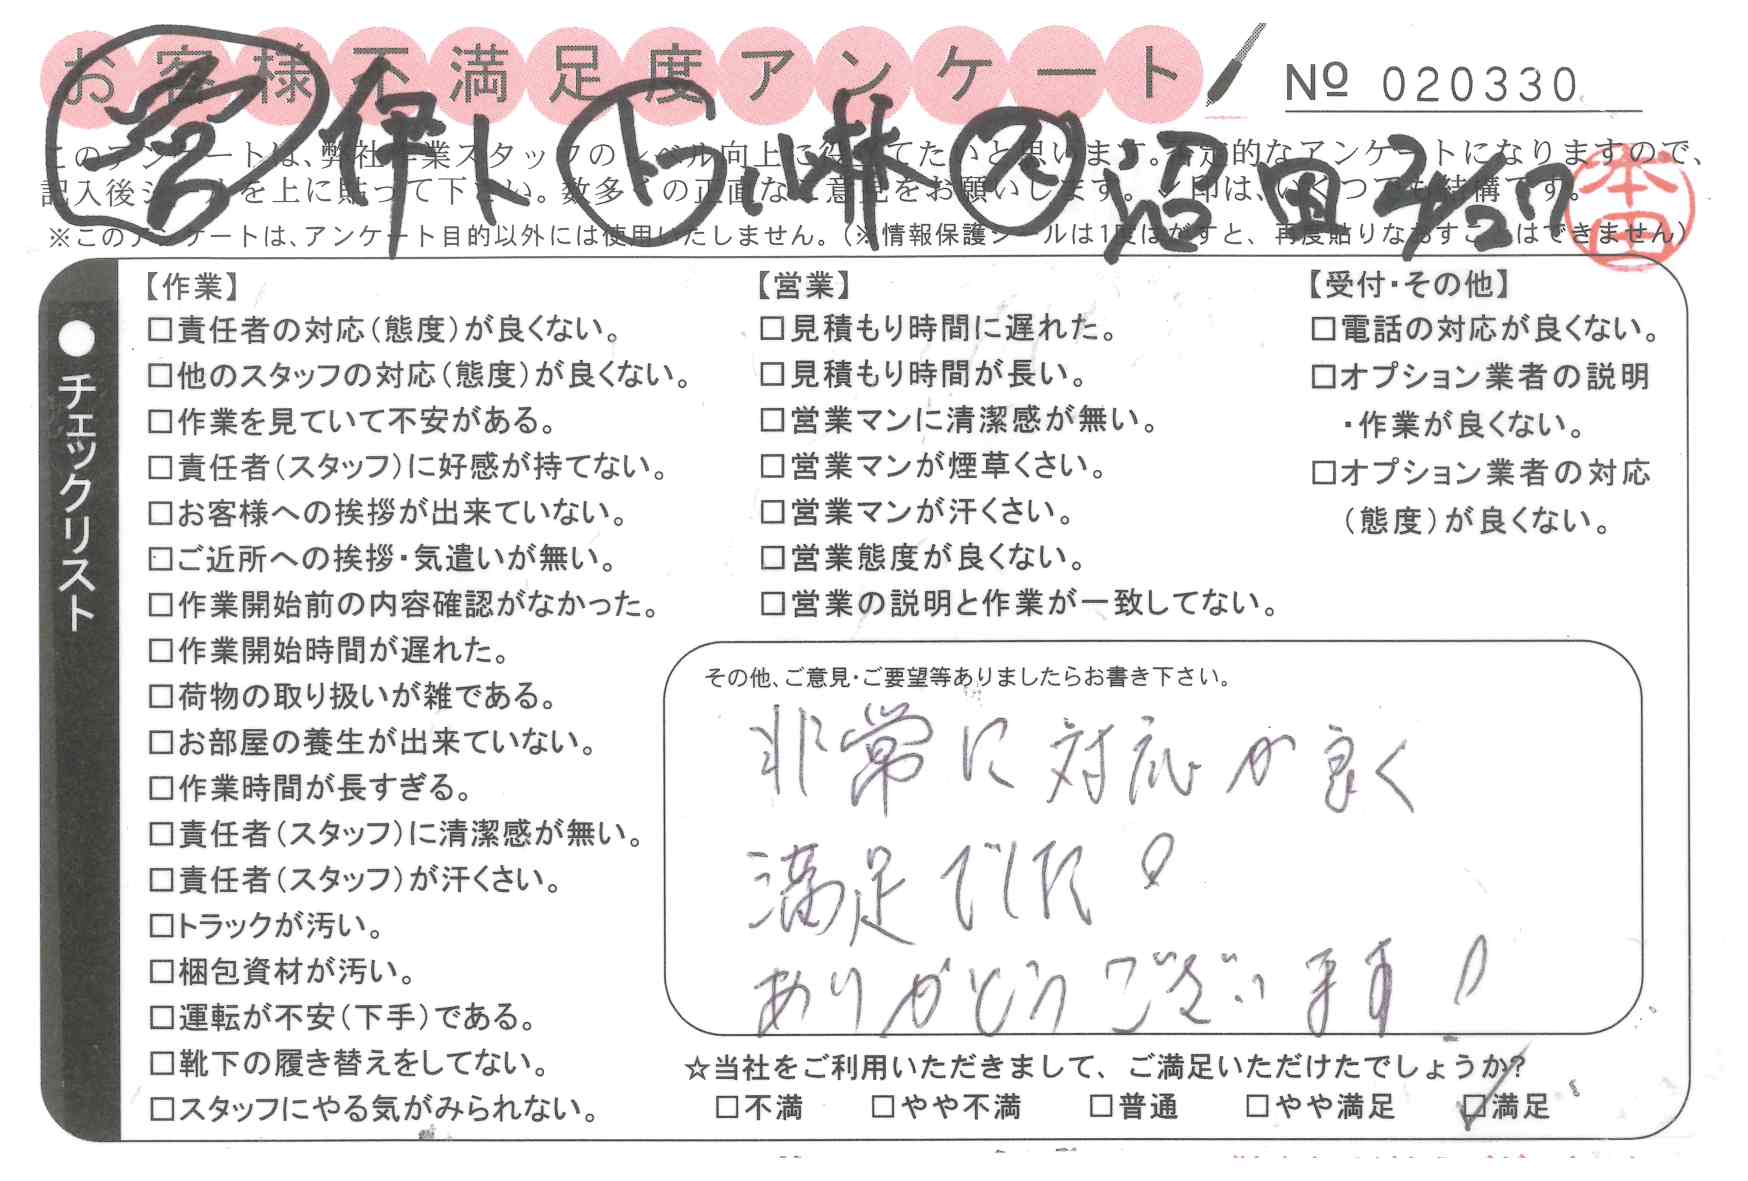 お客様不満足度アンケート
Nº 020330
営 伊ト ド 小林 ス 沼田 2/27
このアンケートは、弊社作業スタッフのレベル向上に役立てたいと思います。否定的なアンケートになりますので、
記入後シールを上に貼って下さい。数多くの正直なご意見をお願いします。レ印は、いくつでも結構です。
※このアンケートは、アンケート目的以外には使用いたしません。(※情報保護シールは1度はがすと、再度貼りなおすことはできません)
本田
●チェックリスト
【作業】
□責任者の対応(態度)が良くない。
□他のスタッフの対応(態度)が良くない。
□作業を見ていて不安がある。
□責任者(スタッフ)に好感が持てない。
□お客様への挨拶が出来ていない。
□ご近所への挨拶・気遣いが無い。
□作業開始前の内容確認がなかった。
□作業開始時間が遅れた。
□荷物の取り扱いが雑である。
□お部屋の養生が出来ていない。
□作業時間が長すぎる。
□責任者(スタッフ)に清潔感が無い。
□責任者(スタッフ)が汗くさい。
□トラックが汚い。
□梱包資材が汚い。
□運転が不安(下手)である。
□靴下の履き替えをしてない。
□スタッフにやる気がみられない。
【営業】
□見積もり時間に遅れた。
□見積もり時間が長い。
□営業マンに清潔感が無い。
□営業マンが煙草くさい。
□営業マンが汗くさい。
□営業態度が良くない。
□営業の説明と作業が一致してない。
【受付・その他】
□電話の対応が良くない。
□オプション業者の説明
・作業が良くない。
□オプション業者の対応
(態度)が良くない。
その他、ご意見・ご要望等ありましたらお書き下さい。
非常に対応が良く
満足でした!
ありがとうございます!
☆当社をご利用いただきまして、ご満足いただけたでしょうか?
□不満 □やや不満 □普通 □やや満足 ☑満足